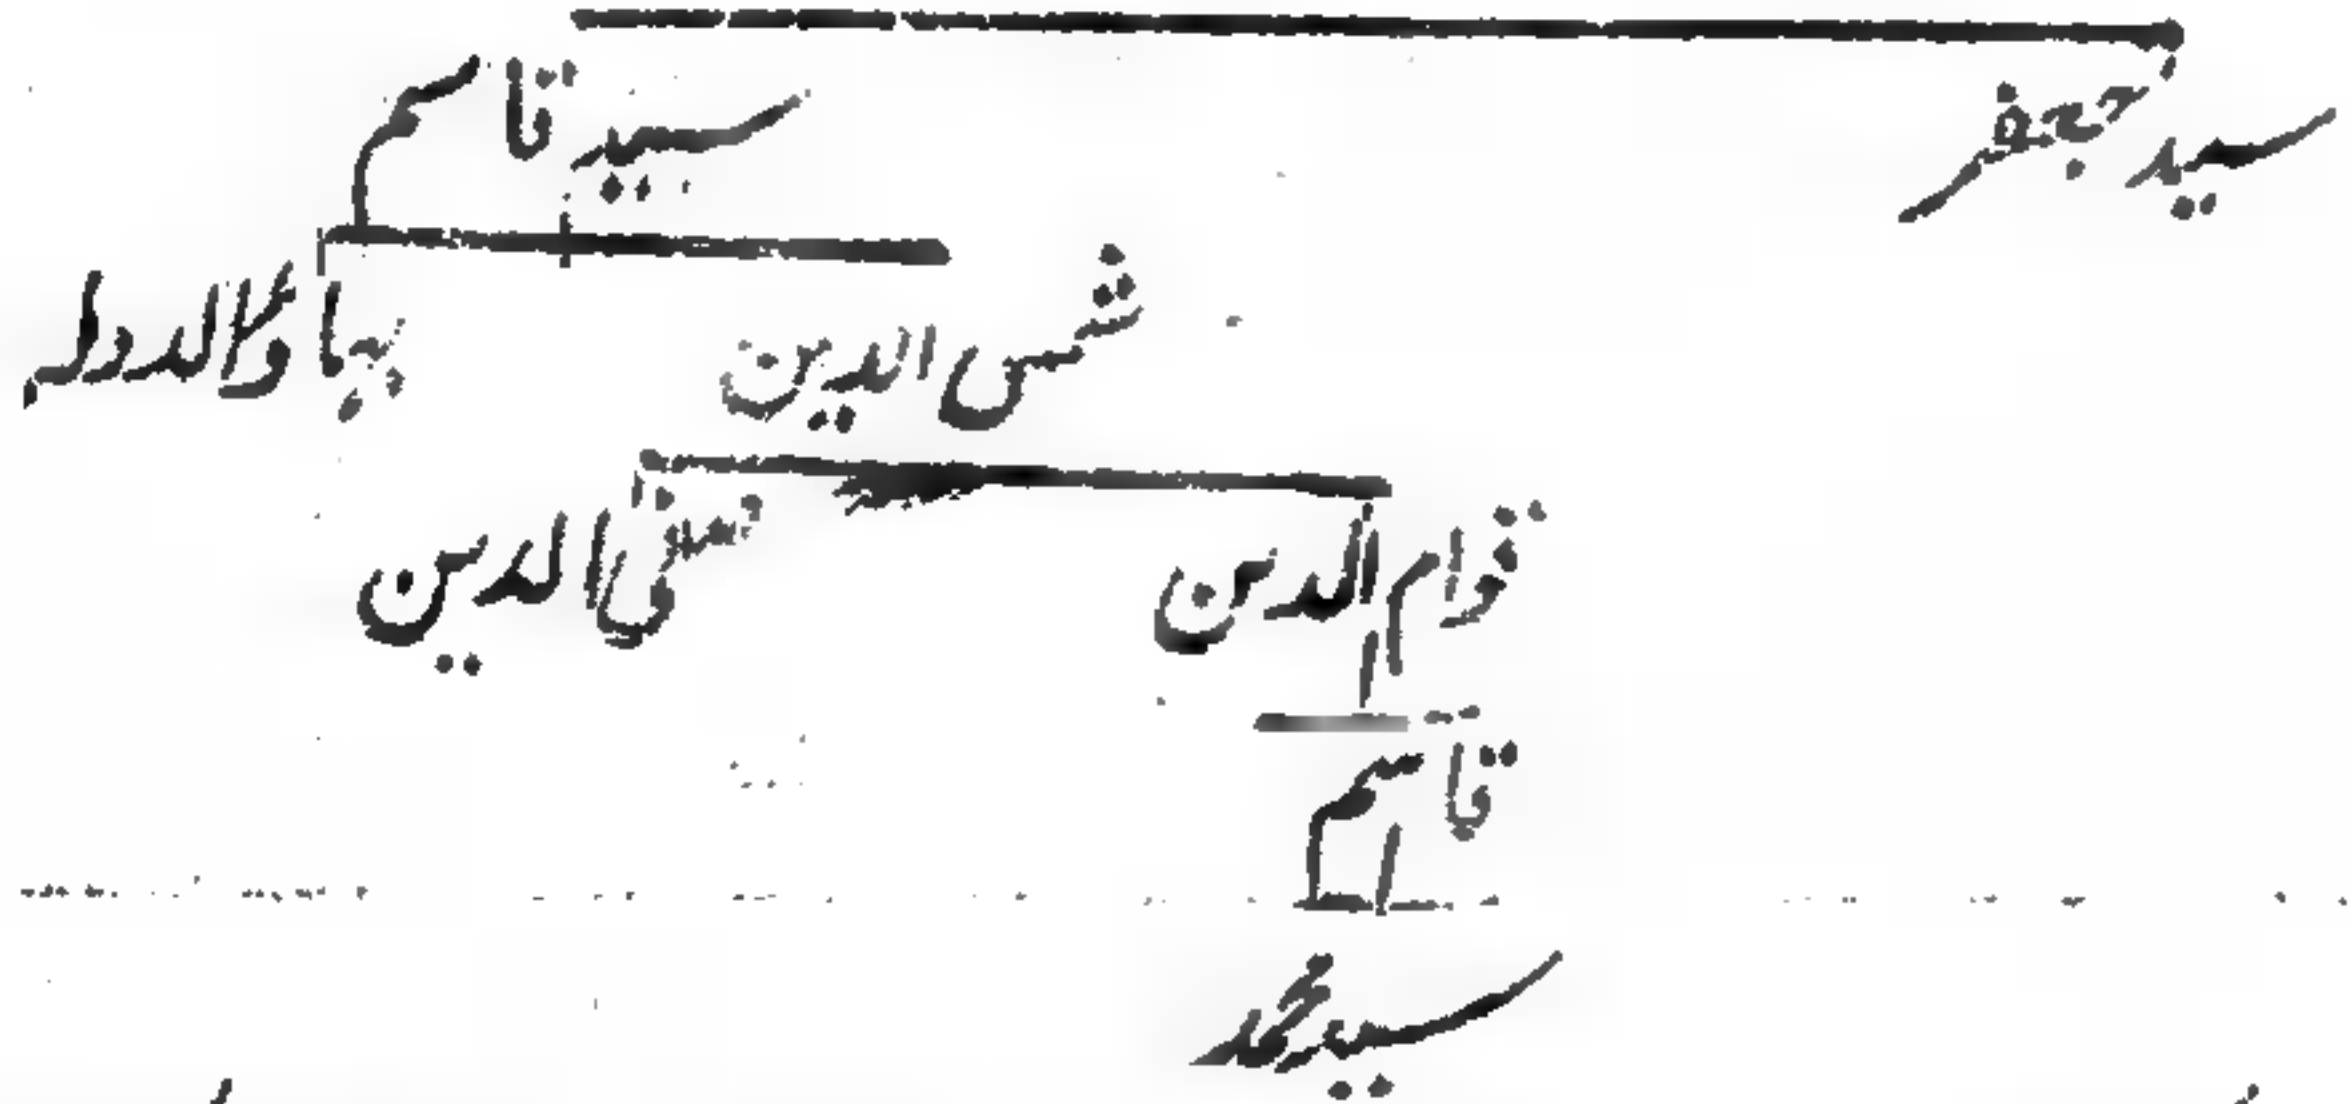 سید جعفر سید قاسم
شمس الدین بہاؤالدولہ
قوام الدین صفی الدین
قاسم
سید محمد